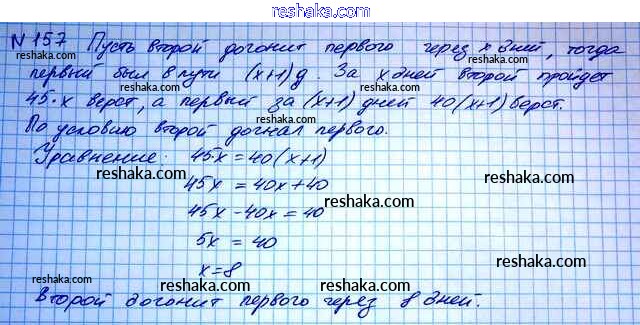 reshaka.com
№157 Пусть второй догонит первого через x дней, тогда
первый был в пути (x+1) д. За x дней второй пройдёт
45·x верст, а первый за (x+1) дней 40(x+1) верст.
По условию второй догнал первого.
Уравнение: 45x = 40(x+1)
45x = 40x+40
45x-40x = 40
5x = 40
x=8
Второй догонит первого через 8 дней.
reshaka.com
reshaka.com
reshaka.com
reshaka.com
reshaka.com
reshaka.com
reshaka.com
reshaka.com
reshaka.com
reshaka.com
reshaka.com
reshaka.com
reshaka.com